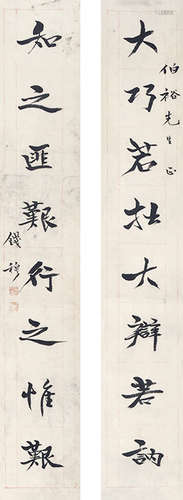 大巧若拙大辯若訥
伯裕先生正
知之匪艱行之惟艱
錢穆